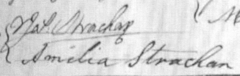 Jas. Strachan
Amelia Strachan